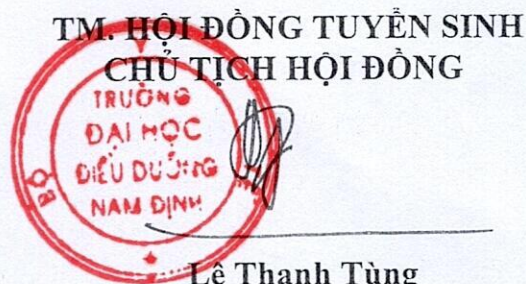 TM. HỘI ĐỒNG TUYỂN SINH
CHỦ TỊCH HỘI ĐỒNG
TRƯỜNG
ĐẠI HỌC
ĐIỀU DƯỠNG
NAM ĐỊNH
BỘ
Lê Thanh Tùng